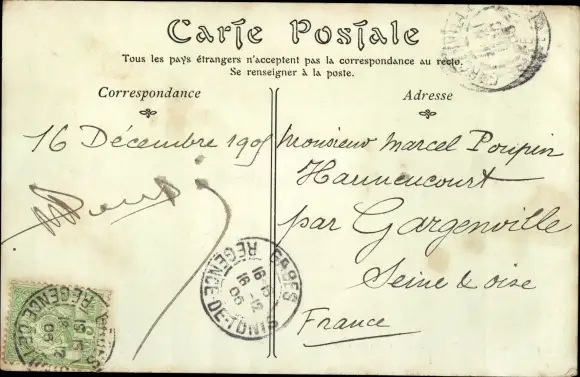 Carte Postale
Tous les pays étrangers n'acceptent pas la correspondance au recto.
Se renseigner à la poste.
Correspondance
Adresse
16 Décembre 1905
Monsieur Marcel Poupin
Hanneucourt
par Gargenville
Seine & oise
France
GABES
16 15
16 - 12
05
REGENCE-DE-TUNIS